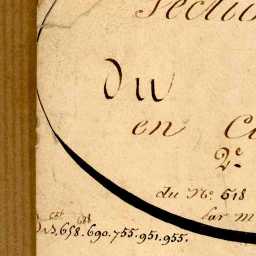 Section
Du
en C
2.e
du No. 618
Par M
658.690.755.951.955.